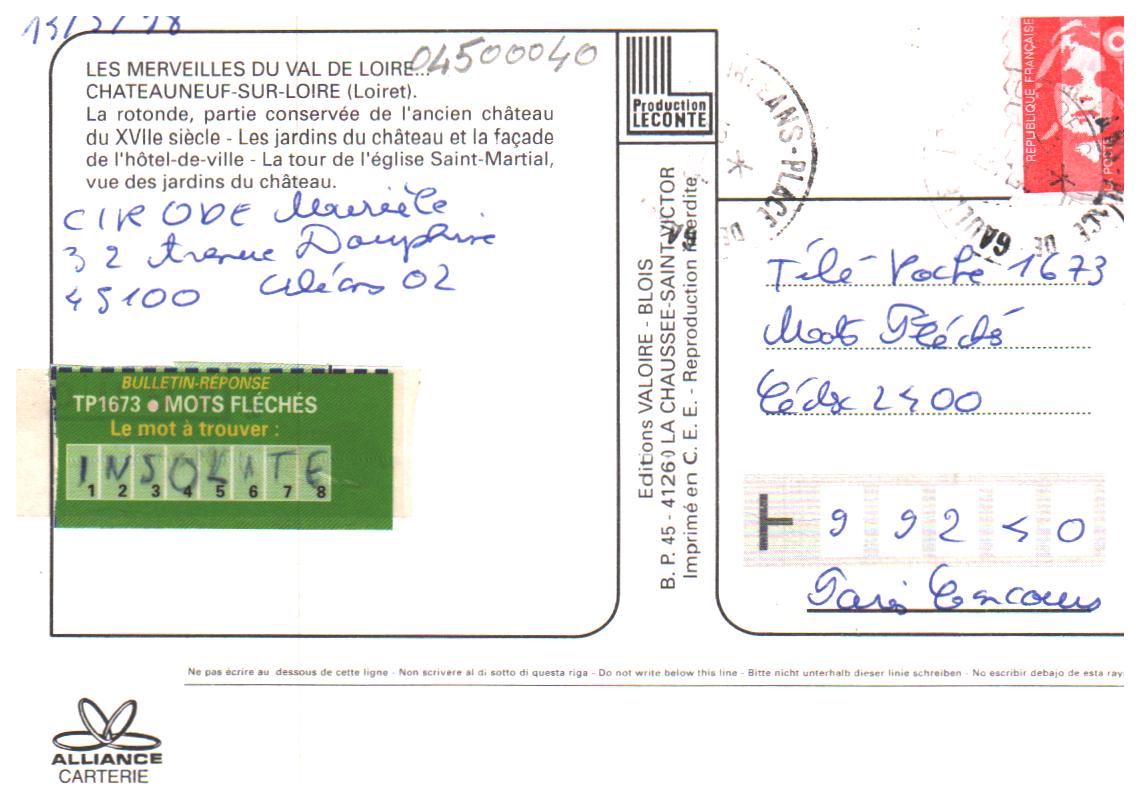 04500040
LES MERVEILLES DU VAL DE LOIRE...
CHATEAUNEUF-SUR-LOIRE (Loiret).
La rotonde, partie conservée de l'ancien château
du XVIIe siècle - Les jardins du château et la façade
de l'hôtel-de-ville - La tour de l'église Saint-Martial,
vue des jardins du château.
CIRODE Murièle
32 Avenue Dauphine
45100 Orléans 02
BULLETIN-RÉPONSE
TP1673 ● MOTS FLÉCHÉS
Le mot à trouver :
INSOLITE
1 2 3 4 5 6 7 8
Production
LECONTE
Editions VALOIRE - BLOIS
B. P. 45 - 41260 LA CHAUSSEE-SAINT-VICTOR
Imprimé en C. E. E. - Reproduction interdite
ORLEANS-PLACE DE
GAULLE
RÉPUBLIQUE FRANÇAISE
Télé Poche 1673
Mots Fléchés
Cédex 2400
99240
Paris Concours
Ne pas écrire au dessous de cette ligne - Non scrivere al di sotto di questa riga - Do not write below this line - Bitte nicht unterhalb dieser linie schreiben - No escribir debajo de esta
ALLIANCE
CARTERIE